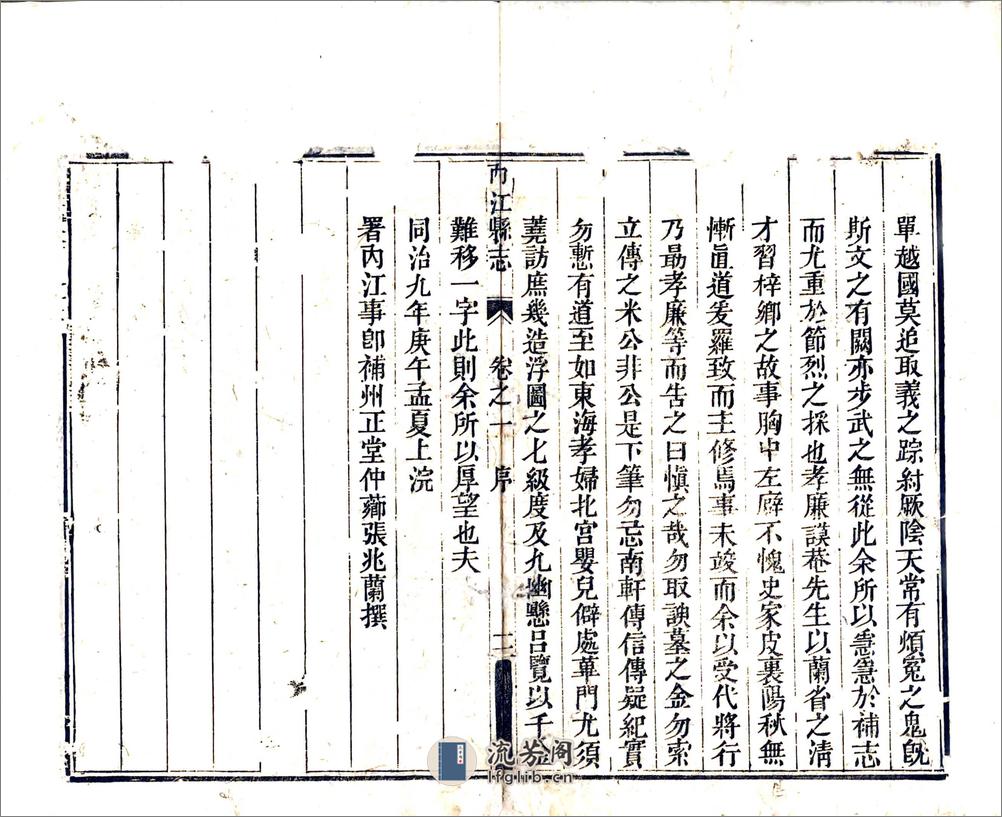 單越國莫追取義之踪紂厥陰天常有煩冤之鬼旣
斯文之有闕亦步武之無從此余所以急急於補志
而尤重於節烈之採也孝廉謨菴先生以蘭省之淸
才習梓鄉之故事胸中左癖不愧史家皮裏陽秋無
慚眞道爰羅致而主修焉事未竣而余以受代將行
乃勗孝廉等而告之曰愼之哉勿取諛墓之金勿索
立傳之米公非公是下筆勿忘南軒傳信傳疑紀實
勿慙有道至如東海孝婦北宮嬰兒僻處蓽門尤須
蕘訪庶幾造浮圖之七級度及九幽懸呂覽以千
難移一字此則余所以厚望也夫
同治九年庚午孟夏上浣
署內江事卽補州正堂仲薌張兆蘭撰
內江縣志 卷之一 序 二
流芬阁
lfglib.cn